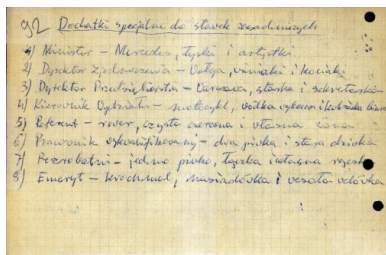 92 Dochatki specjalne do stawek zasadniczych
1) Minister – Mercedes, tyski i artystki
2) Dyrektor Zjednoczenia – Wołga, winiaki i kociaki
3) Dyrektor Przedsiębiorstwa – Warszawa, starka i sekretarka
4) Kierownik Oddziału – motocykl, wódka wyborowa i
5) Referent – rower, czysta czerwona i własna żona
6) Pracownik wykwalifikowany – dwa piwka i stara dziwka
7) Bezrobotni – jedno piwko, i własna
8) Emeryt – Krochmal, i wesoła wdówka